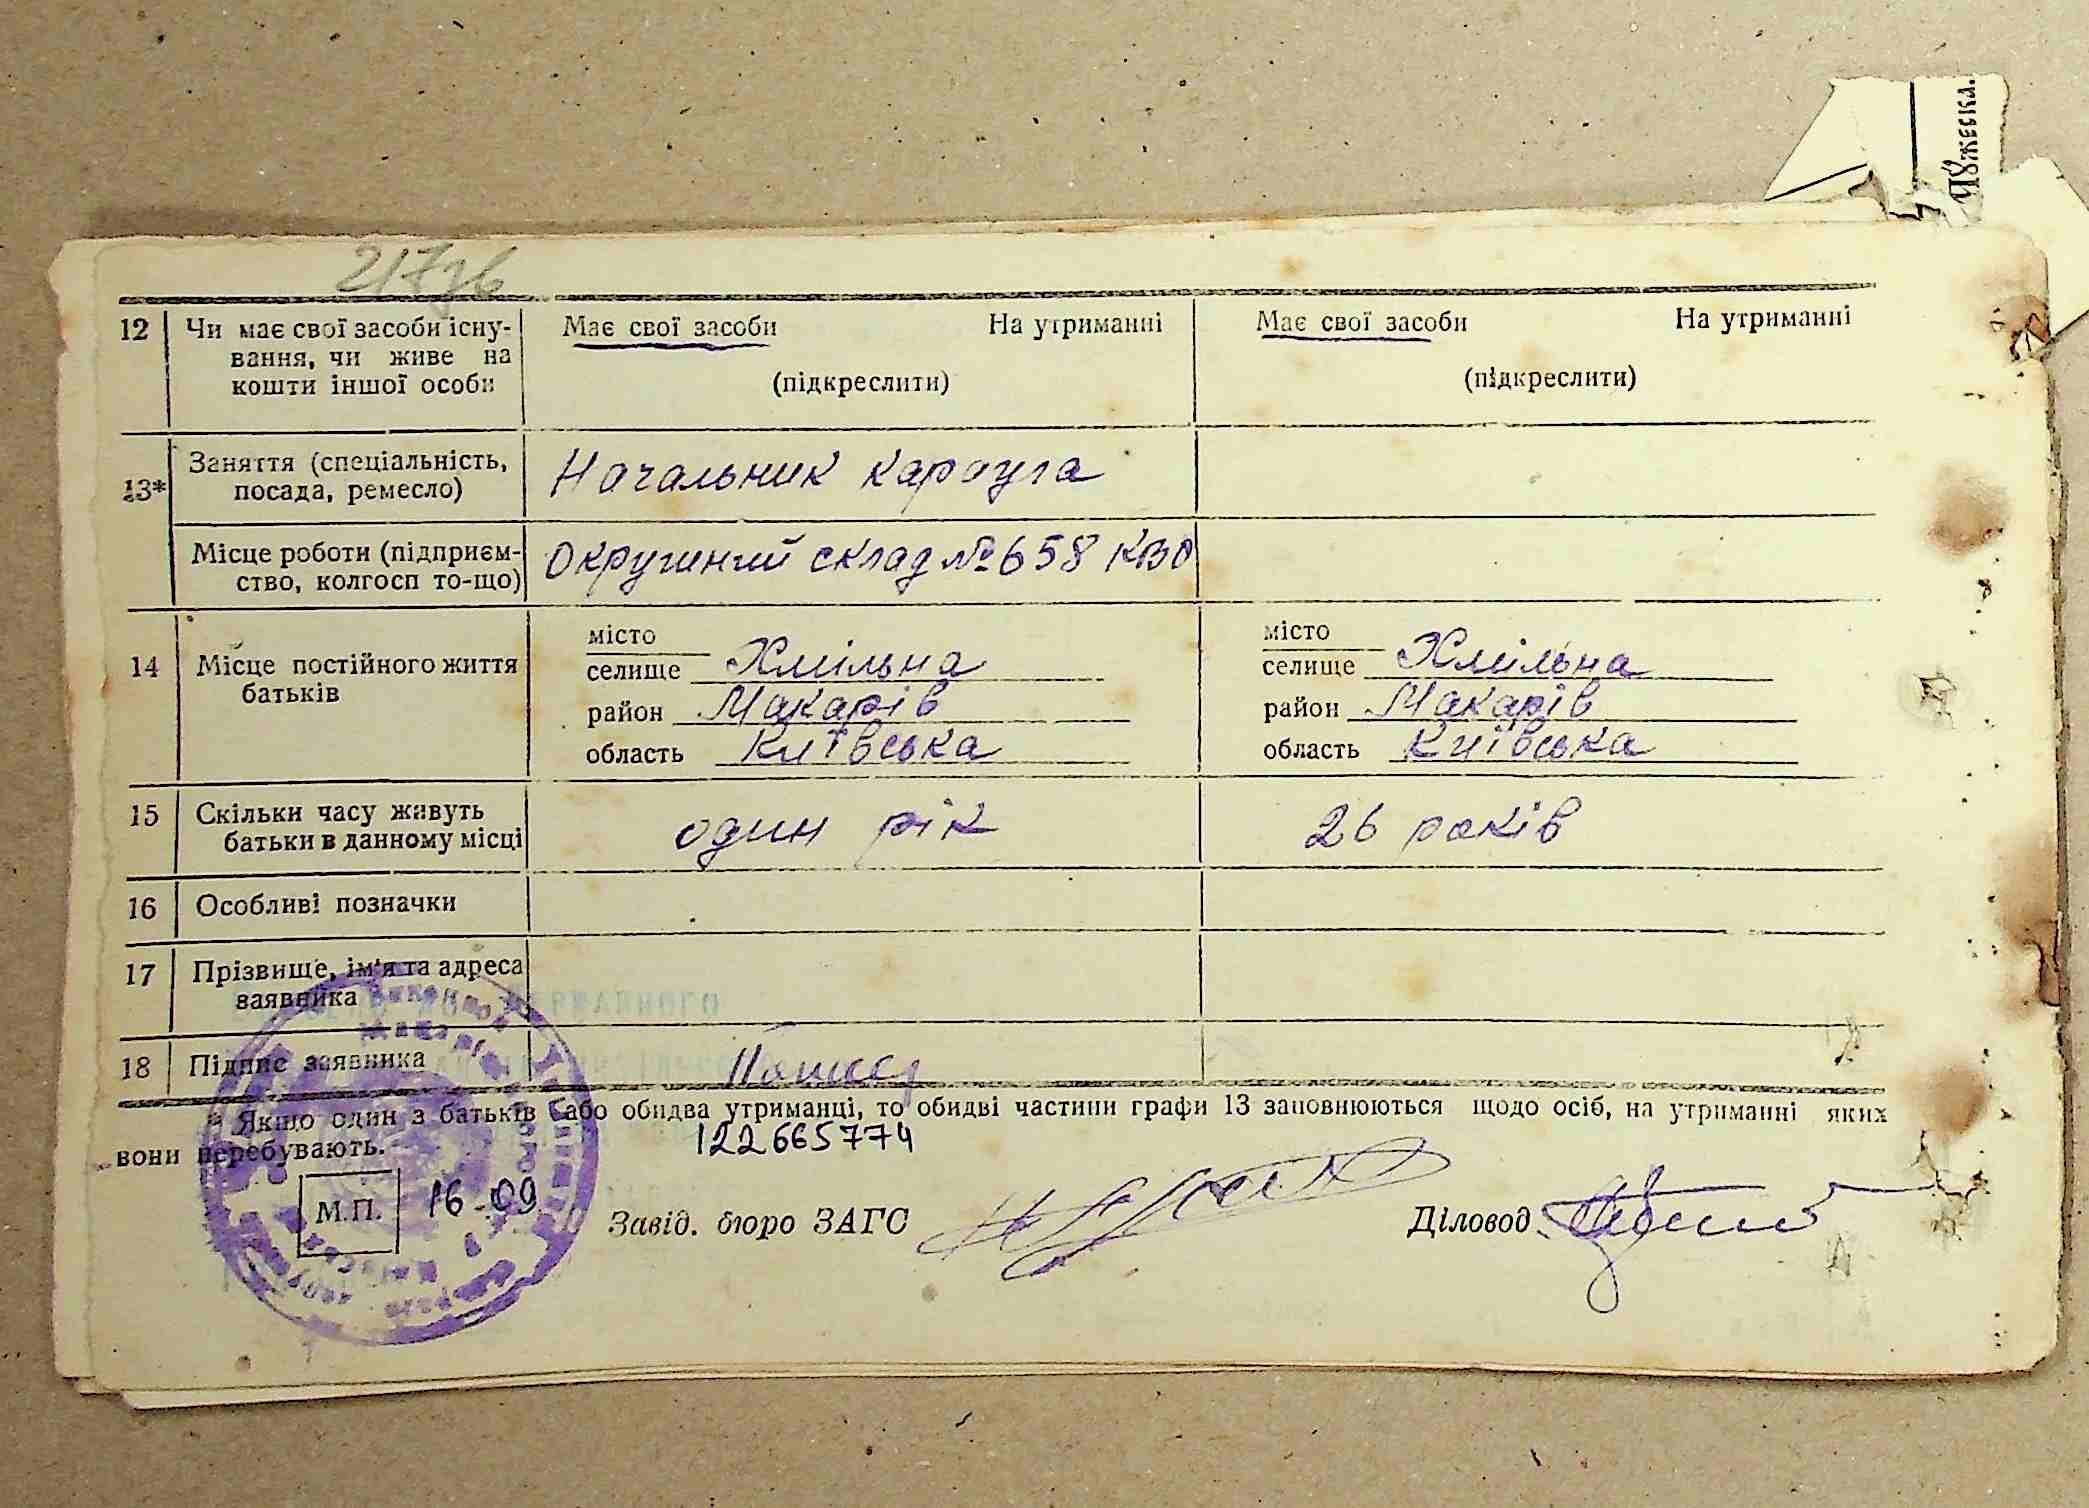 Мужеска.
12 Чи має свої засоби існу-
вання, чи живе на
кошти іншої особи
Має свої засоби На утриманні
(підкреслити)
Має свої засоби На утриманні
(підкреслити)
13* Заняття (спеціальність,
посада, ремесло)
Начальник караула
Місце роботи (підприєм-
ство, колгосп то-що)
Окружний склад № 658 КВО
14 Місце постійного життя
батьків
місто
селище Хмільна
район Макарів
область Київська
місто
селище Хмільна
район Макарів
область Київська
15 Скільки часу живуть
батьки в данному місці
один рік
26 років
16 Особливі позначки
17 Прізвище, ім'я та адреса
заявника
18 Підпис заявника
* Якщо один з батьків або обидва утриманці, то обидві частини графи 13 заповнюються щодо осіб, на утриманні яких
вони перебувають.
122665774
М.П. 16-09
Завід. бюро ЗАГС
Діловод